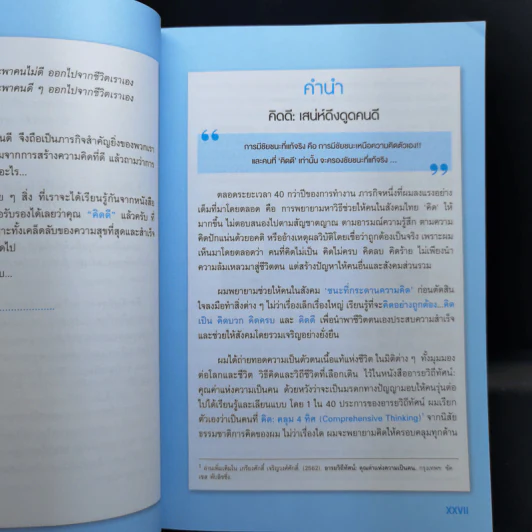 พาคนไม่ดี ออกไปจากชีวิตเราเอง
พาคนดี ๆ ออกไปจากชีวิตเราเอง
นดี จึงถือเป็นภารกิจสำคัญยิ่งของพวกเรา
มจากการสร้างความคิดที่ดี แล้วถามว่าการ
อะไร...
ย ๆ สิ่ง ที่เราจะได้เรียนรู้กันจากหนังสือ
อรับรองได้เลยว่าคุณ "คิดดี" แล้วครับ
าะทั้งเคล็ดลับของความสุขที่สุดและสำเร็จ
ดไป
บ...
คำนำ
คิดดี: เสน่ห์ดึงดูดคนดี
การมีชัยชนะที่แท้จริง คือ การมีชัยชนะเหนือความคิดตัวเอง!!
และคนที่ 'คิดดี' เท่านั้น จะครองชัยชนะที่แท้จริง ...
ตลอดระยะเวลา 40 กว่าปีของการทำงาน ภารกิจหนึ่งที่ผมลงแรงอย่าง
เต็มที่มาโดยตลอด คือ การพยายามหาวิธีช่วยให้คนในสังคมไทย 'คิด' ให้
มากขึ้น ไม่ตอบสนองไปตามสัญชาตญาณ ตามอารมณ์ความรู้สึก ตามความ
คิดปักแน่นด้วยอคติ หรืออ้างเหตุผลวิบัติโดยเชื่อว่าถูกต้องเป็นจริง เพราะผม
เห็นมาโดยตลอดว่า คนที่คิดไม่เป็น คิดไม่ครบ คิดลบ คิดร้าย ไม่เพียงนำ
ความล้มเหลวมาสู่ชีวิตตน แต่สร้างปัญหาให้คนอื่นและสังคมส่วนรวม
ผมพยายามช่วยให้คนในสังคม 'ชนะที่กระดานความคิด' ก่อนตัดสิน
ใจลงมือทำสิ่งต่าง ๆ ไม่ว่าเรื่องเล็กเรื่องใหญ่ เรียนรู้ที่จะคิดอย่างถูกต้อง...คิด
เป็น คิดบวก คิดครบ และ คิดดี เพื่อนำพาชีวิตตนเองประสบความสำเร็จ
และช่วยให้สังคมโดยรวมเจริญอย่างยั่งยืน
ผมได้ถ่ายทอดความเป็นตัวตนเนื้อแท้แห่งชีวิต ในมิติต่าง ๆ ทั้งมุมมอง
ต่อโลกและชีวิต วิธีคิดและวิถีชีวิตที่เลือกเดิน ไว้ในหนังสืออารยวิถีทัศน์:
คุณค่าแห่งความเป็นคน ด้วยหวังว่าจะเป็นมรดกทางปัญญามอบให้คนรุ่นต่อ
ไปได้เรียนรู้และเลียนแบบ โดย 1 ใน 40 ประการของอารยวิถีทัศน์ ผมเรียก
ตัวเองว่าเป็นคนที่ คิด: คลุม 4 ทิศ (Comprehensive Thinking)¹ จากนิสัย
ธรรมชาติการคิดของผม ไม่ว่าเรื่องใด ผมจะพยายามคิดให้ครอบคลุมทุกด้าน
¹ อ่านเพิ่มเติมใน เกรียงศักดิ์ เจริญวงศ์ศักดิ์. (2562). อารยวิถีทัศน์: คุณค่าแห่งความเป็นคน. กรุงเทพฯ: ซัค
เซส พับลิชชิ่ง.
XXVII